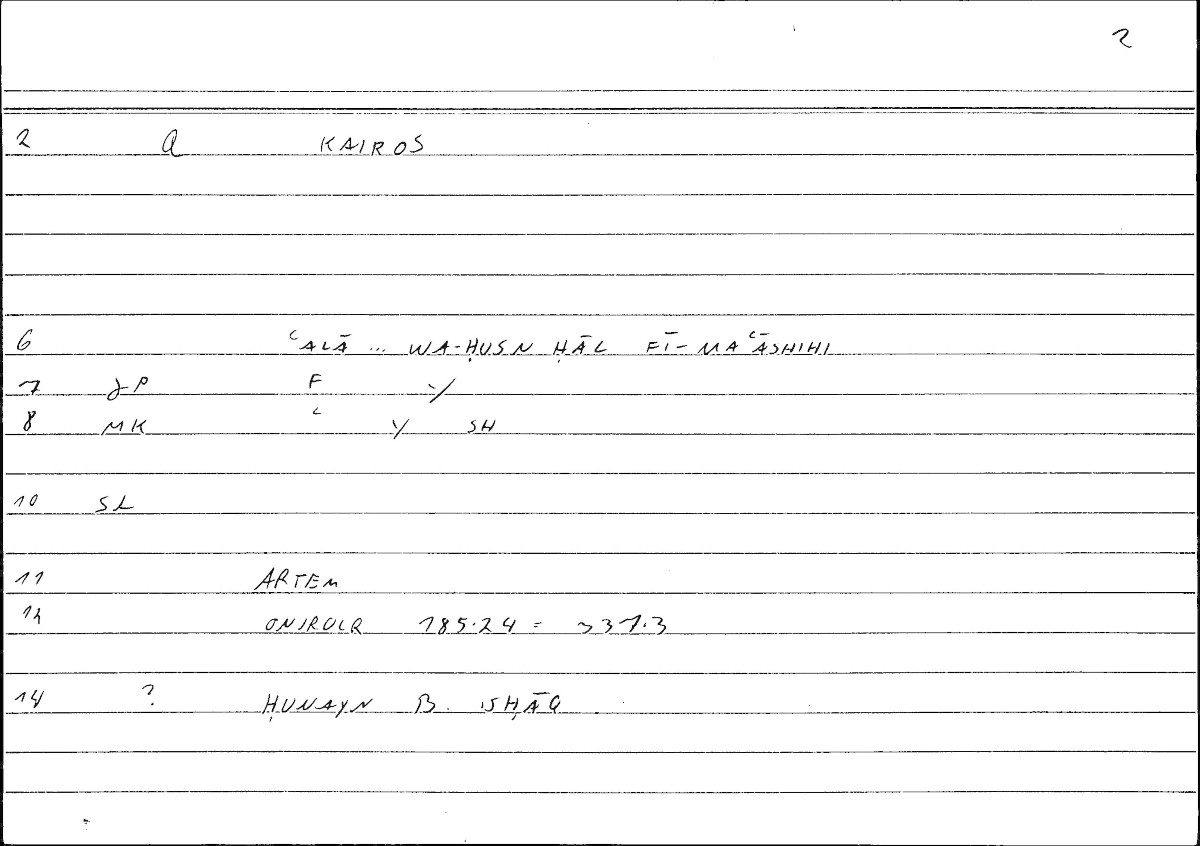 2
2 a KAIROS
6 ʿALĀ ... WA-ḤUSN ḤĀL FĪ-MAʿĀSHIHI
7 JP F ·/
8 MK ʿ ·/ SH
10 SL
11 ARTEM
12 ONIROCR 185.24 = 337.3
14 ? ḤUNAYN B. ISḤĀQ